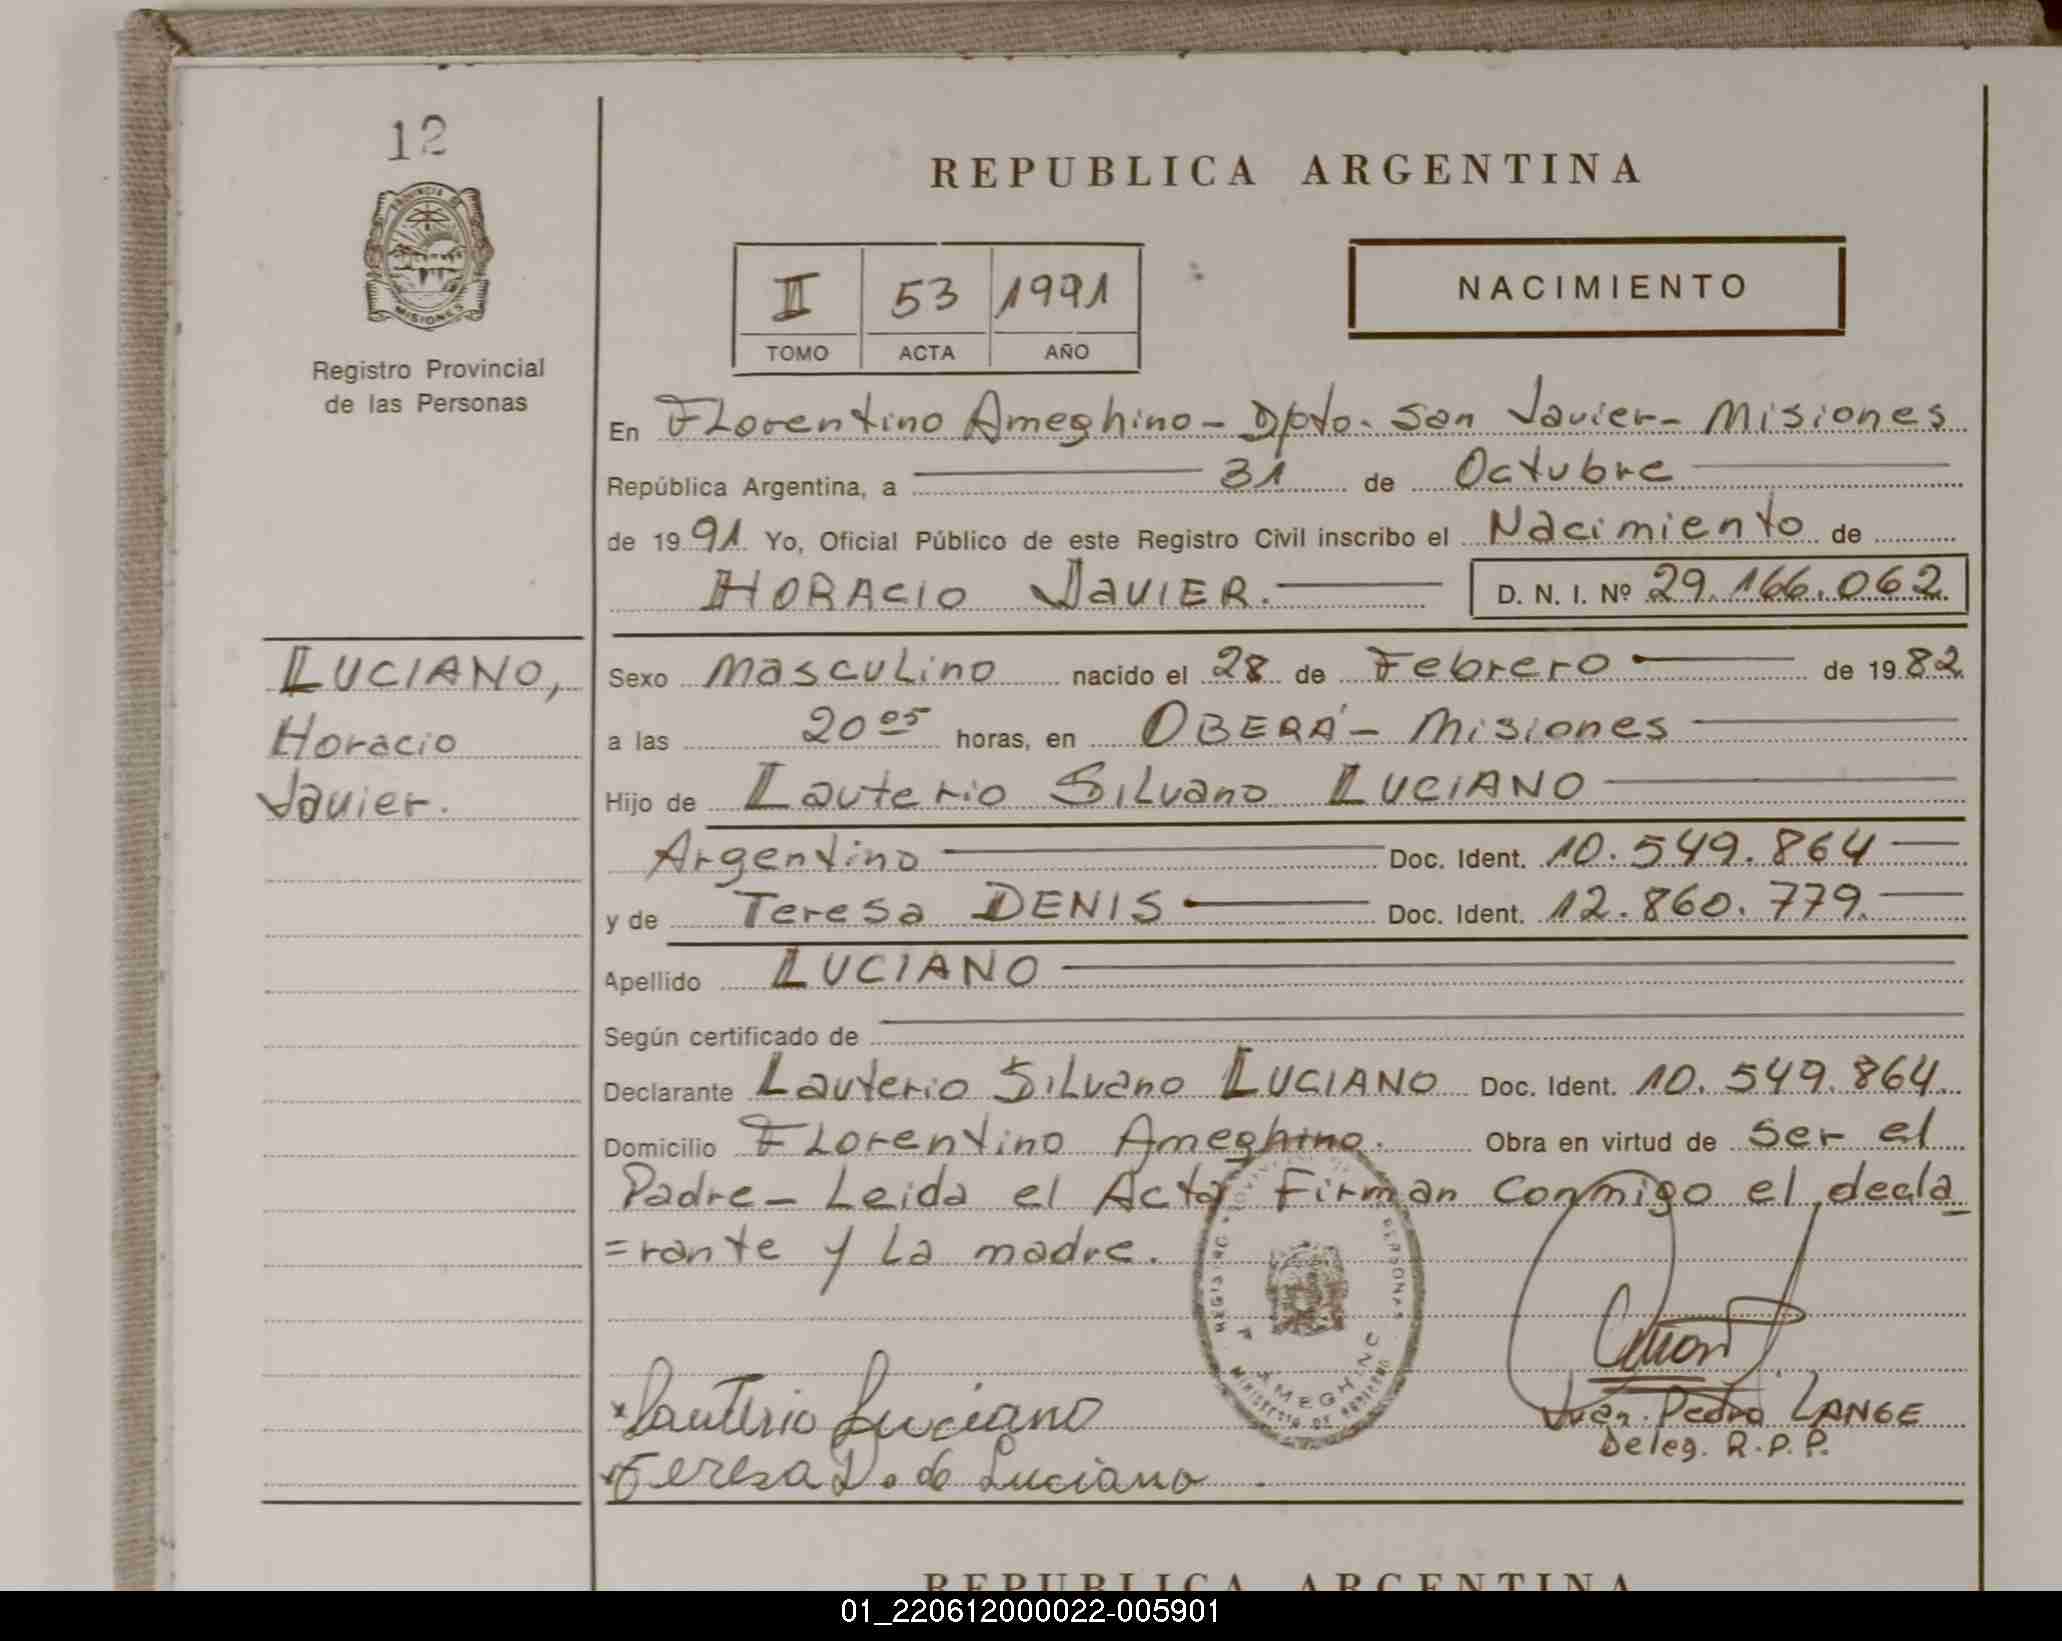 12
PROVINCIA DE
MISIONES
Registro Provincial
de las Personas
LUCIANO,
Horacio
Javier.
REPUBLICA ARGENTINA
II 53 1991
TOMO ACTA AÑO
NACIMIENTO
En Florentino Ameghino - Dpto. San Javier - Misiones
República Argentina, a 31 de Octubre
de 1991 Yo, Oficial Público de este Registro Civil inscribo el Nacimiento de
HORACIO JAVIER. D. N. I. Nº 29.166.062
Sexo Masculino nacido el 28 de Febrero de 1982
a las 20 05 horas, en OBERÁ - Misiones
Hijo de Lauterio Silvano LUCIANO
Argentino Doc. Ident. 10.549.864
y de Teresa DENIS Doc. Ident. 12.860.779.
Apellido LUCIANO
Según certificado de
Declarante Lauterio Silvano LUCIANO Doc. Ident. 10.549.864
Domicilio Florentino Ameghino. Obra en virtud de ser el
Padre - Leida el Acta Firman Conmigo el decla
=rante y La madre.
REGISTRO PERSONAS
F. AMEGHINO
MINISTERIO DE GOBIERNO
Juan Pedro LANGE
Deleg. R.P.P.
Lauterio Luciano
Teresa D. de Luciano
REPUBLICA ARGENTINA
01_220612000022-005901